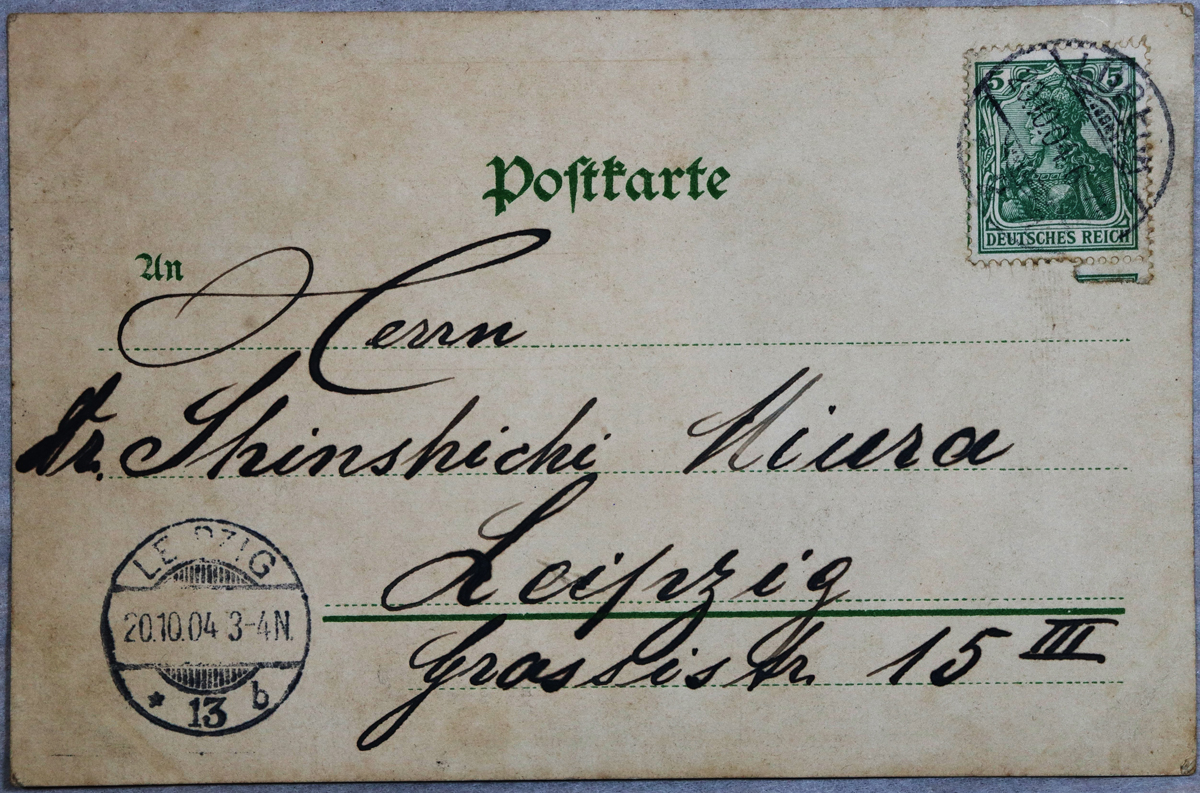 Postkarte
5 5
DEUTSCHES REICH
An
Herrn
Dr. Shinshichi Miura
Leipzig
Grassistr. 15 III
LEIPZIG
20.10.04 3-4N.
* 13 b